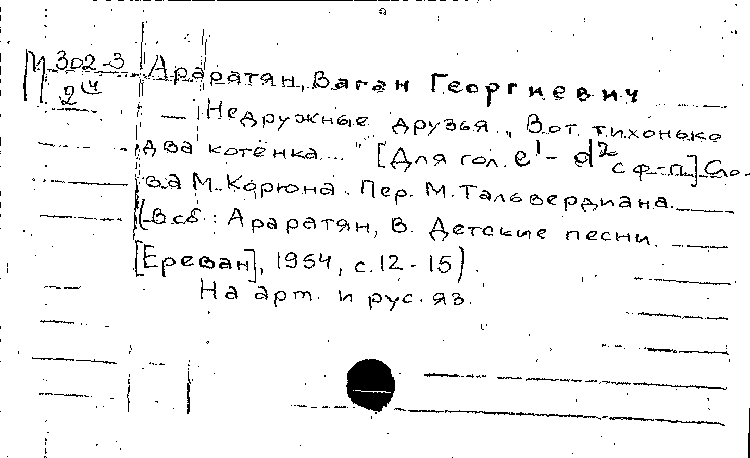 М 302-3 Араратян, Ваган Георгиевич
2ч — Недружные друзья. „Вот тихонько
два котёнка..." [Для гол. e¹ - d² с ф-п] Сло-
ва М. Корюна. Пер. М. Тальвердиана.
(В сб: Араратян, В. Детские песни.
[Ереван], 1954, с. 12 - 15).
На арм. и рус. яз.